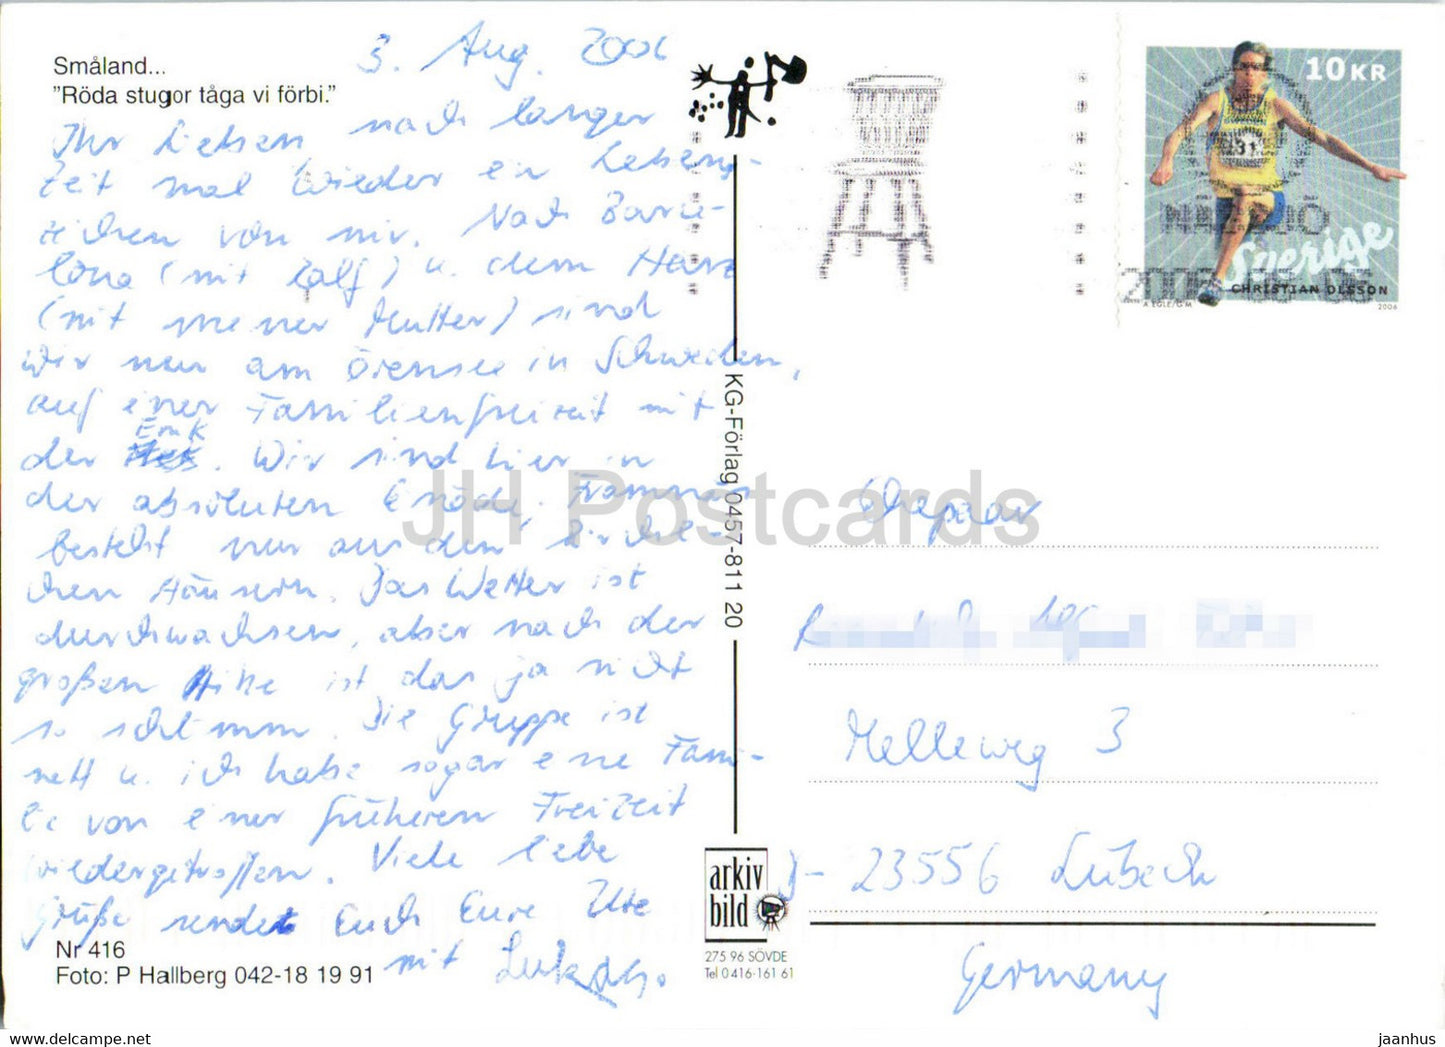 Småland...
"Röda stugor tåga vi förbi."
3. Aug. 2006
Ihr Lieben nach langer
Zeit mal wieder ein Lebens-
zeichen von mir. Nach Barce-
lona (mit Ralf) u. dem Harz
(mit meiner Mutter) sind
wir nun am Örensee in Schweden,
auf einer Familienfreizeit mit
der EmK
der. Wir sind hier in
der absoluten Einöde. Framnäs
besteht nur aus den Kirchli-
chen Häusern. Das Wetter ist
durchwachsen, aber nach der
großen Hitze ist das ja nicht
so schlimm. Die Gruppe ist
nett u. ich habe sogar eine Fami-
lie von einer früheren Freizeit
wiedergetroffen. Viele liebe
Grüße sendet Euch Eure Ute
mit Lukas.
Nr 416
Foto: P Hallberg 042-18 19 91
KG-Förlag 0457-811 20
arkiv
bild
275 96 SÖVDE
Tel 0416-161 61
10 KR
31
Sverige
CHRISTIAN OLSSON
2006
Ehepaar
Melleweg 3
D-23556 Lübeck
Germany
JH Postcards
www.hippostcard.com
jaanhus